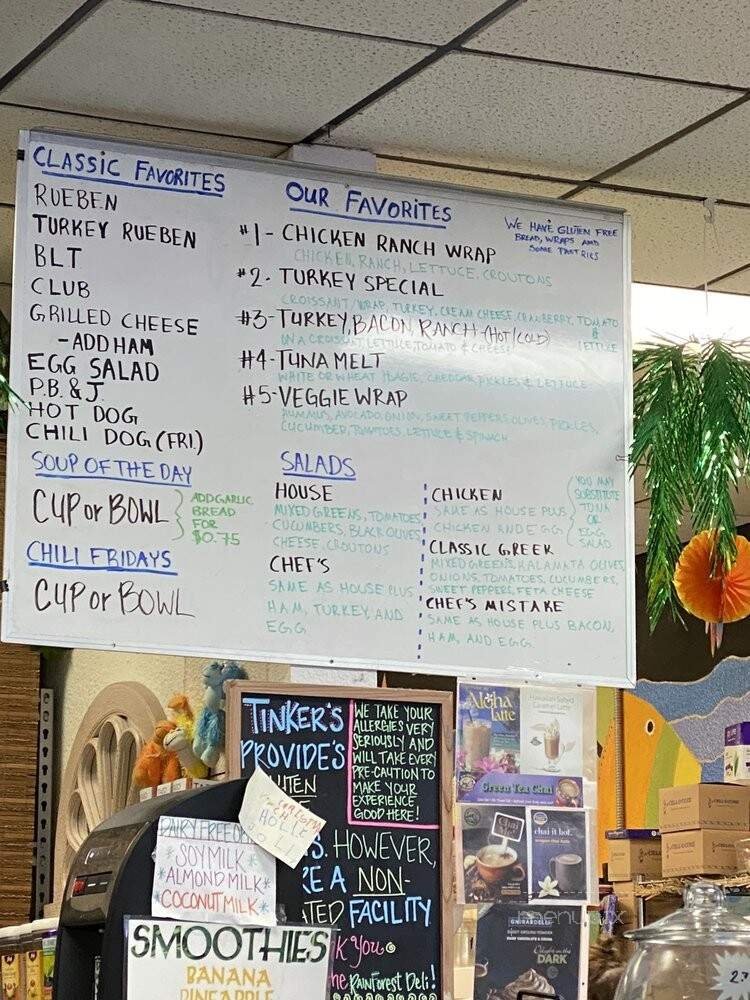 CLASSIC FAVORITES
RUEBEN
TURKEY RUEBEN
BLT
CLUB
GRILLED CHEESE
-ADD HAM
EGG SALAD
P.B. & J.
HOT DOG
CHILI DOG (FRI.)
SOUP OF THE DAY
CUP or BOWL
ADD GARLIC
BREAD
FOR
$0.75
CHILI FRIDAYS
CUP or BOWL
OUR FAVORITES
WE HAVE GLUTEN FREE
BREAD, WRAPS AND
SOME PASTRIES
#1- CHICKEN RANCH WRAP
CHICKEN, RANCH, LETTUCE, CROUTONS
#2- TURKEY SPECIAL
CROISSANT/WRAP, TURKEY, CREAM CHEESE, CRANBERRY, TOMATO
&
LETTUCE
#3- TURKEY, BACON, RANCH (HOT/COLD)
ON A CROISSANT, LETTUCE, TOMATO & CHEESE
#4- TUNA MELT
WHITE OR WHEAT HOAGIE, CHEDDAR, PICKLES & LETTUCE
#5- VEGGIE WRAP
HUMMUS, AVOCADO, ONION, SWEET PEPPERS, OLIVES, PICKLES,
CUCUMBER, TOMATOES, LETTUCE & SPINACH
SALADS
HOUSE
MIXED GREENS, TOMATOES
CUCUMBERS, BLACK OLIVES
CHEESE, CROUTONS
CHEF'S
SAME AS HOUSE PLUS
HAM, TURKEY, AND
EGG
CHICKEN
SAME AS HOUSE PLUS
CHICKEN AND EGG
YOU MAY
SUBSTITUTE
TUNA
OR
EGG
SALAD
CLASSIC GREEK
MIXED GREENS, KALAMATA OLIVES,
ONIONS, TOMATOES, CUCUMBERS,
SWEET PEPPERS, FETA CHEESE
CHEF'S MISTAKE
SAME AS HOUSE PLUS BACON,
HAM, AND EGG
TINKER'S
PROVIDE'S
UTEN
WE TAKE YOUR
ALLERGIES VERY
SERIOUSLY AND
WILL TAKE EVERY
PRE-CAUTION TO
MAKE YOUR
EXPERIENCE
GOOD HERE!
S. HOWEVER,
RE A NON-
ATED FACILITY
K YOU
he RAINFOREST Deli!
DAIRY FREE
*SOY MILK*
*ALMOND MILK*
*COCONUT MILK*
SMOOTHIES
BANANA
PINEAPPLE
Aloha
latte
Hawaiian Salted
Caramel Latte
Green Tea Chai
chai
chai it hot.
GHIRARDELLI
DARK
menupix